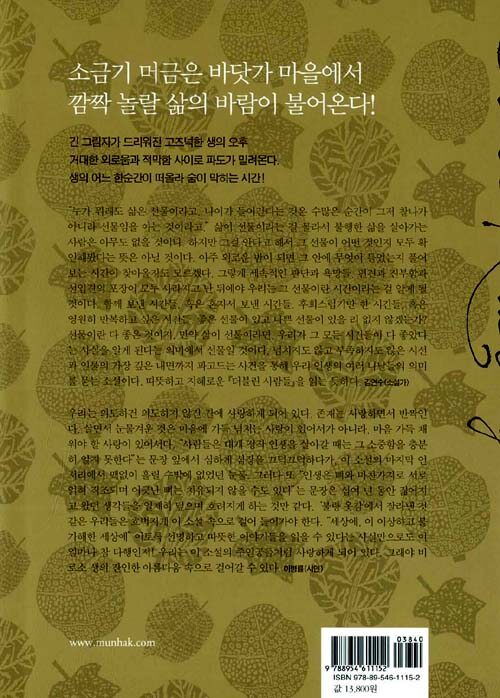 소금기 머금은 바닷가 마을에서
깜짝 놀랄 삶의 바람이 불어온다!
긴 그림자가 드리워진 고즈넉한 생의 오후
거대한 외로움과 적막함 사이로 파도가 밀려온다.
생의 어느 한순간이 떠올라 숨이 막히는 시간!
"누가 뭐래도 삶은 선물이라고, 나이가 들어간다는 것은 수많은 순간이 그저 찰나가
아니라 선물임을 아는 것이라고." 삶이 선물이라는 걸 몰라서 불행한 삶을 살아가는
사람은 아무도 없을 것이다. 하지만 그걸 안다고 해서 그 선물이 어떤 것인지 모두 확
인해봤다는 뜻은 아닐 것이다. 아주 외로운 밤이 되면 그 안에 무엇이 들었는지 풀어
보는 시간이 찾아올지도 모르겠다. 그렇게 세속적인 판단과 욕망들, 편견과 진부함과
선입견의 포장이 모두 사라지고 난 뒤에야 우리는 그 선물이란 시간이라는 걸 알게 될
것이다. 함께 보낸 시간들, 혹은 혼자서 보낸 시간들. 후회스럽기만 한 시간들, 혹은
영원히 반복하고 싶은 시간들. 좋은 선물이 있고 나쁜 선물이 있을 리 없지 않겠는가?
선물이란 다 좋은 것이기. 만약 삶이 선물이라면, 우리가 그 모든 시간들이 다 좋았다
는 사실을 알게 된다는 의미에서 선물일 것이다. 넘치지도 않고 부족하지도 않은 시선
과 인물의 가장 깊은 내면까지 파고드는 시건을 통해 우리 인생의 여러 나날들의 의미
를 묻는 소설이다. 따뜻하고 지혜로운 『더블린 사람들』을 읽는 듯하다. 김연수(소설가)
우리는 의도하건 의도하지 않건 간에 사랑하게 되어 있다. 존재는 사랑하면서 반짝인
다. 살면서 눈물겨운 것은 마음에 가득 넘치는 사랑이 있어서가 아니라, 마음 가득 채
워야 할 사랑이 있어서다. "사람들은 대개 정작 인생을 살아갈 때는 그 소중함을 충분
히 알지 못한다"는 문장 앞에서 심하게 설정을 끄덕끄덕하다가, 이 소설의 마지막 언
저리에서 맥없이 흘릴 수밖에 없었던 눈물. 그러다 또 "인생은 뼈와 마찬가지로 서로
얽혀 직조되며 어긋난 뼈는 치유되지 않을 수도 있다"는 문장은 십여 년 동안 끊어지
고 왔던 생각들을 일제히 멈추며 흐려지게 하는 것만 같다.
같은 우리들은 흔쾌하게 이 소설 속으로 걸어 들어가야 한다. "세상에, 이 이상하고 불
가해한 세상에" 이토록 선명하고 따뜻한 이야기들을 읽을 수 있다는 사실만으로도 이
얼마나 참 다행인지! 우리는 이 소설의 주인공들처럼 사랑하게 되어 있다. 그래야 비
로소 생의 잔인한 아름다움 속으로 걸어갈 수 있다. 이병률(시인)
www.munhak.com
03840
9 788954 611152
ISBN 978-89-546-1115-2
값 13,800원